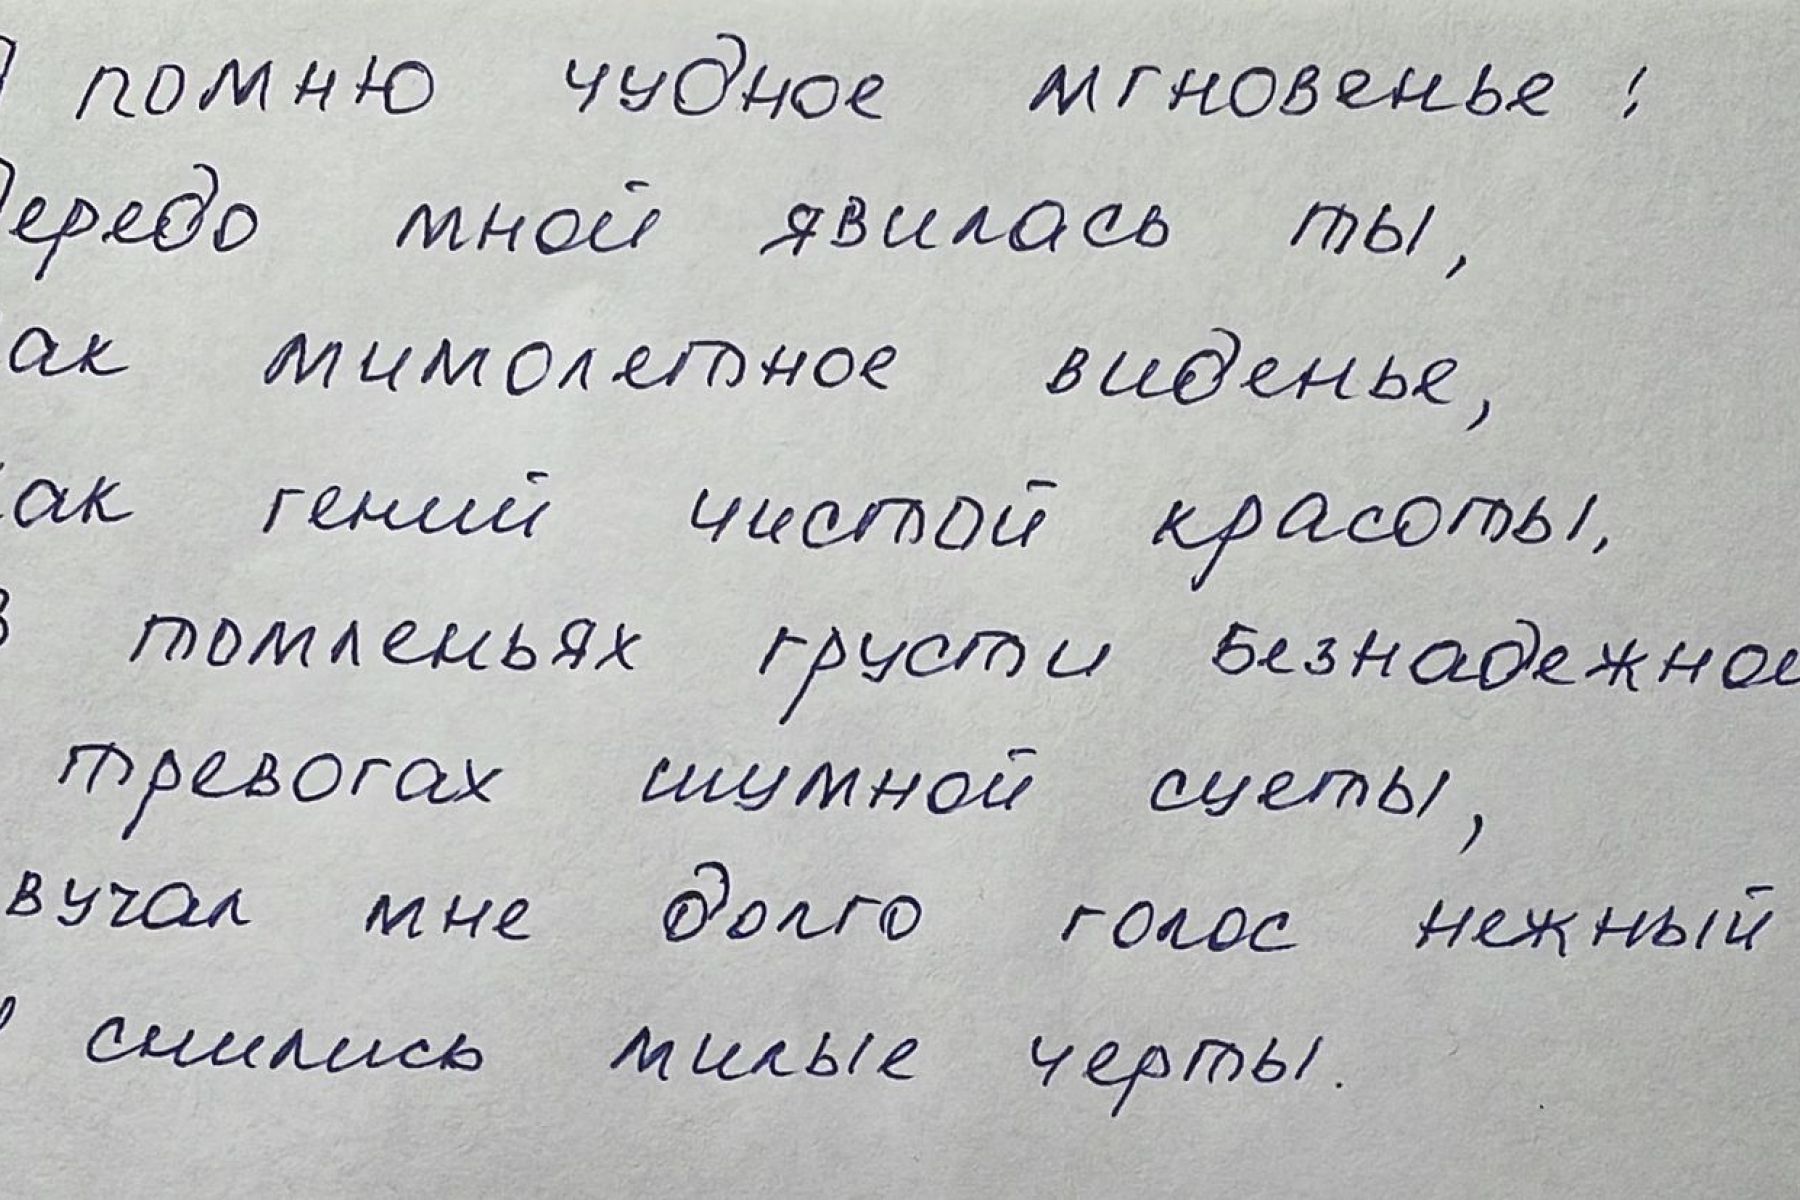 Я помню чудное мгновенье:
Передо мной явилась ты,
Как мимолетное виденье,
Как гений чистой красоты.
В томленьях грусти безнадежной
тревогах шумной суеты,
вучал мне долго голос нежный
И снились милые черты.